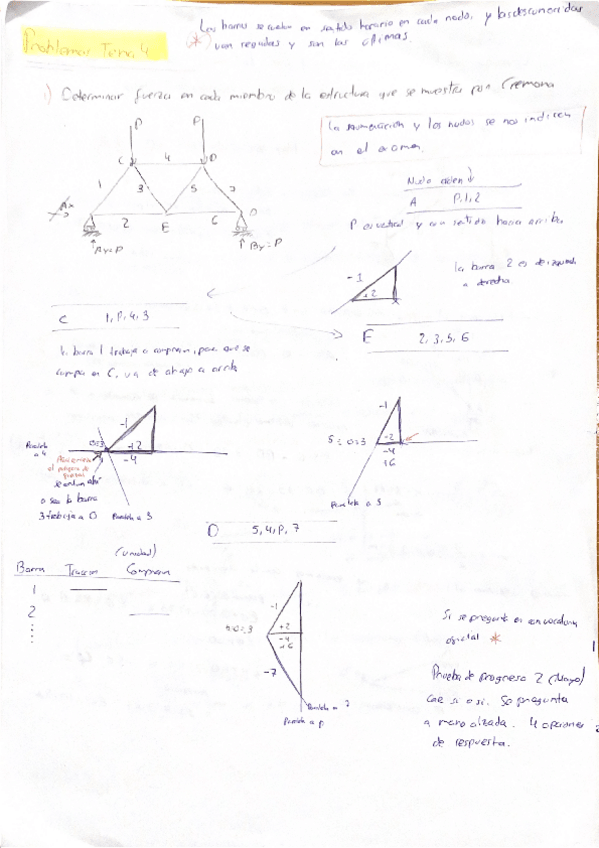 Las barras se cuelan en sentido horario en cada nodo, y las desconocidas
* van seguidas y son las últimas.
Problemas Tema 4
1) Determinar fuerza en cada miembro de la estructura que se muestra por Cremona
La numeración y los nudos se nos indican
en el examen
P P
C 4 D
1 3 5 7
Ax 2 E 6 B
Ay=P By=P
Nudo orden ↓
A P,1,2
P es vertical y con sentido hacia arriba
-1
+2
la barra 2 es de izquierda
a derecha
C 1,P,4,3
E 2,3,5,6
la barra 1 trabaja a compresión, para que se
cumpla en C, va de abajo a arriba
-1
0=3
+2
-4
Paralela
a 4
el polígono de
fuerzas
o sea la barra
3 trabaja a 0 Paralela a 3
-1
5=0=3
-2
-4
+6
Paralela a 5
D 5,4,P,7
(unidad)
Barra Tracción Compresión
1
2
-1
+2
-4
+6
-7
Paralela a 7
Paralela a P
Si se pregunta es en convocatoria
oficial *
Prueba de progreso 2 (Mayo)
Cae si o si. Se pregunta
a mano alzada. 4 opciones
de respuesta.